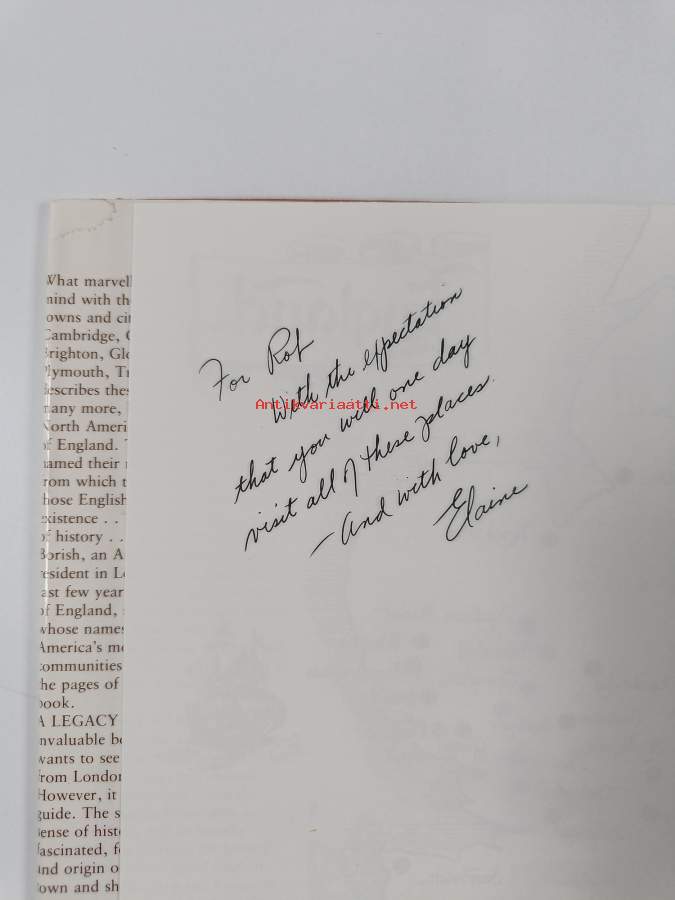 What marvel
mind with th
owns and cit
Cambridge, G
Brighton, Glo
Plymouth, Tr
describes thes
many more,
North Ameri
of England. T
named their
rom which t
hose English
existence . .
of history . .
Borish, an A
resident in Lo
ast few year
of England,
whose names
America's mo
communities
he pages of
book.
A LEGACY
nvaluable bo
wants to see
from London
However, it
guide. The s
sense of histo
fascinated, f
and origin o
own and sh
For Rob
With the expectation
that you will one day
visit all of these places.
– And with love,
Elaine
Antikvariaatti.net